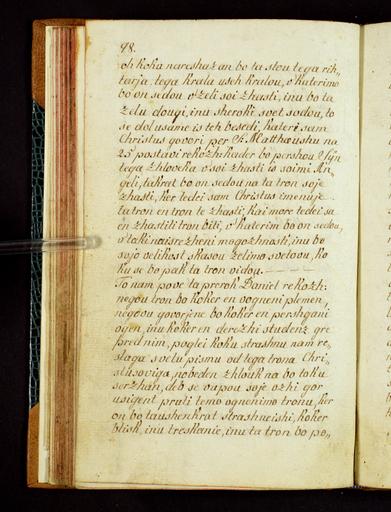 98.
oh koku nareshaz an bo ta stou tega rih„
tarja tega krala useh kralou, v'katerimo
bo on sedou v'zeli soi zhasti, inu bo ta
zelu dougi, inu sheroki svet sodou, to
se dol usame is teh besedi, kateri sam
Christus govori per S. Matthaushu na
25 postavi rekozh: kader bo pershou Syn
tega zhloveka v'soi zhasti is soimi An„
geli, takrat bo on sedou na ta tron soje
zhasti, ker tedei sam Christus imenuje
ta tron en tron te zhasti, kai more tedei sa
en zhastiti tron biti, v'katerim bo on sedou,
v'ti naisrezheni mogozhnosti, inu bo
sojo velikost skasou zelimo svetovu, ko
ku se bo pak ta tron vidou.
To nam pove ta prerok Daniel rekozh:
negou tron bo koker en vogneni plemen,
negovu govorjene bo koker en pershgani
ogen, inu koker en derezhi studenz gre
pred nim, poglei koku strashnu nam re„
slaga svetu pismu od tega trona Chri„
stusoviga, nobeden zhlouk na bo toku
serzhan, deb se vupou soje ozhi gor
usigent pruti temo ognenimo tronu, ker
on bo taushenkrat strashneishi, koker
blisk, inu treskanie, inu ta tron bo po„